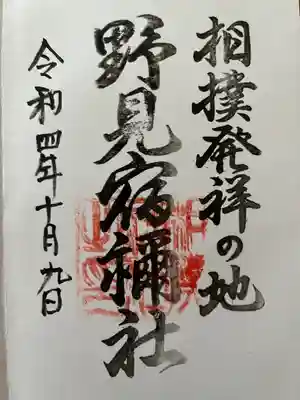 相撲発祥の地
野見宿禰社
令和四年十月九日